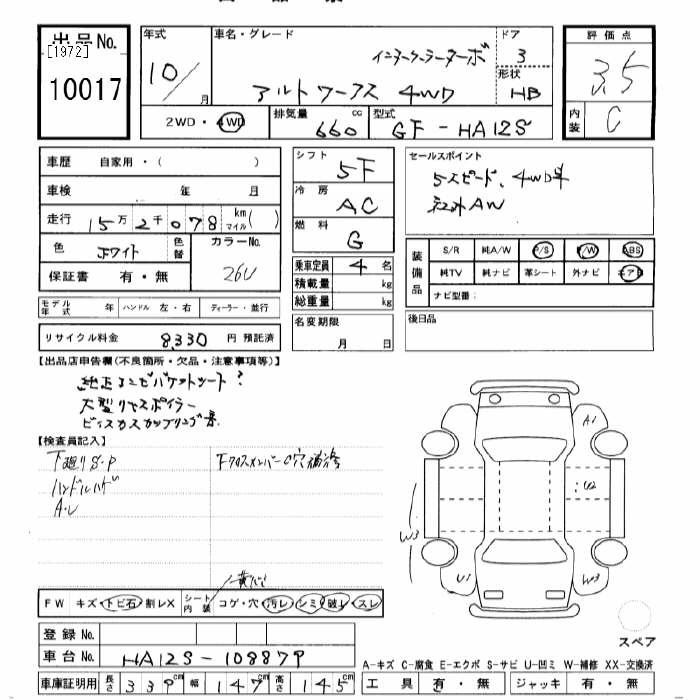 出品No.
[1972]
10017
年式
10/
月
車名・グレード
インタークーラーターボ
アルトワークス 4WD
ドア
3
形状
HB
2WD・4WD
排気量
660 cc
型式
GF-HA12S
評価点
3.5
内装
C
車歴 自家用・( )
車検 年 月
走行 15万2千078 km マイル ( )
色 ホワイト 色替
カラーNo.
26U
保証書 有・無
モデル年式 年 ハンドル 左・右 ディーラー・並行
リサイクル料金 8,330 円 預託済
シフト
5F
冷房
AC
燃料
G
乗車定員 4 名
積載量 kg
総重量 kg
名変期限
月 日
セールスポイント
5スピード、4WD車
社外AW
装備品
S/R 純A/W P/S P/W ABS
純TV 純ナビ 革シート 外ナビ エアB
ナビ型番:
後日品
【出品店申告欄(不良箇所・欠品・注意事項等)】
大型リヤスポイラー
ビィスカスカップリング
【検査員記入】
下廻りS・P
ハンドルハゲ
A・U
A1
U2
W3
U1
W3
FW キズ・トビ石 割レX
シート内装 コゲ・穴 汚レ・シミ・破レ・スレ
登録No.
車台No. HA12S-108879
車庫証明用 長さ 339cm 幅 147cm 高さ 145cm
スペア
A-キズ C-腐食 E-エクボ S-サビ U-凹ミ W-補修 XX-交換済
工具 有・無 ジャッキ 有・無